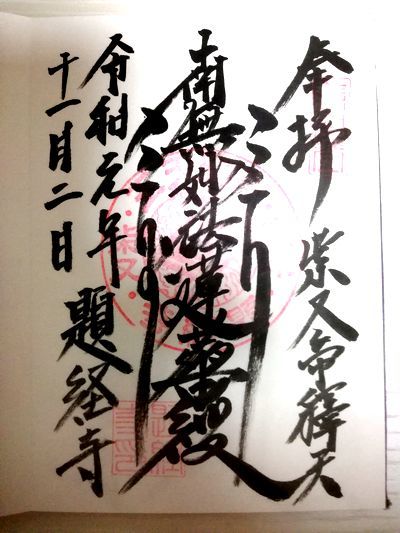 奉拝
柴又帝釋天
南無妙法蓮華経
令和元年
十一月二日
題経寺